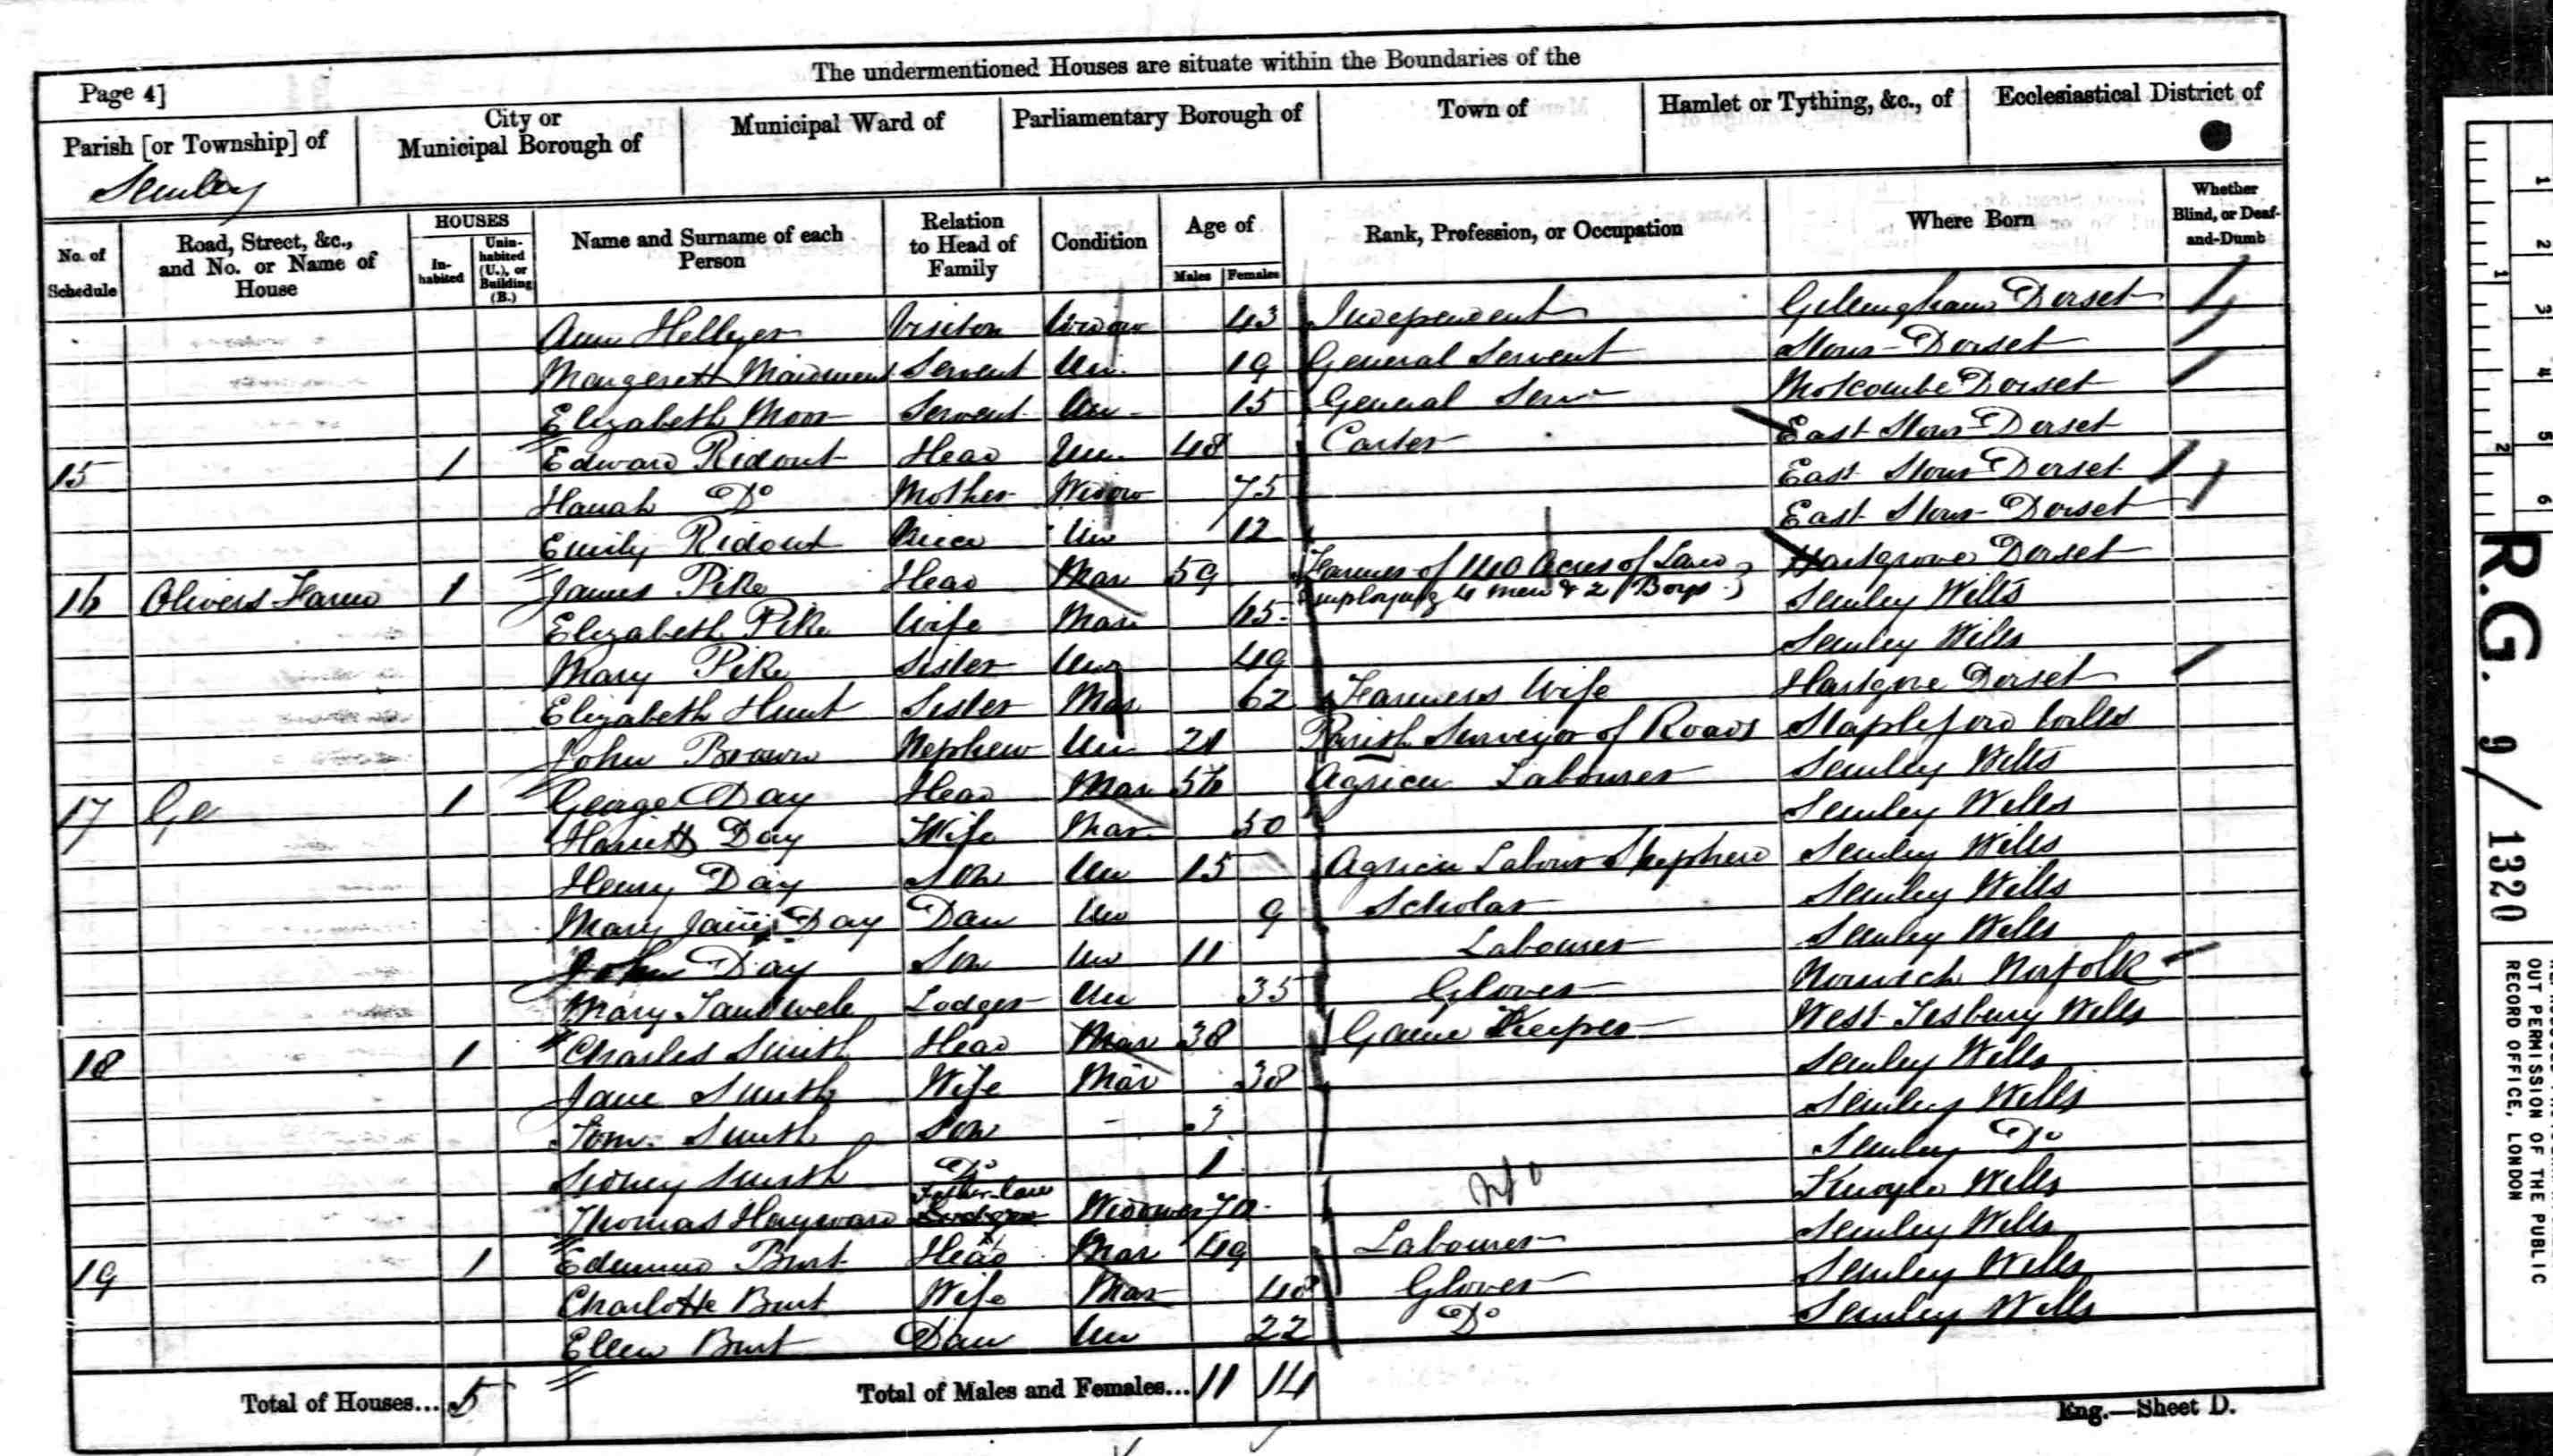 The undermentioned Houses are situate within the Boundaries of the
Page 4]
Parish [or Township] of
Semley
City or
Municipal Borough of
Municipal Ward of
Parliamentary Borough of
Town of
Hamlet or Tything, &c., of
Ecclesiastical District of
No. of
Schedule
Road, Street, &c.,
and No. or Name of
House
HOUSES
In-
habited
Unin-
habited
(U.), or
Building
(B.)
Name and Surname of each
Person
Relation
to Head of
Family
Condition
Age of
Males
Females
Rank, Profession, or Occupation
Where Born
Whether
Blind, or Deaf-
and-Dumb
Ann Hellyer Visitor Widow 43 Independent Gillingham Dorset
Margerett Maidment Servent Un. 19 General Servent Stour Dorset
Elizabeth Moor Servent Un 15 General Serv Motcombe Dorset
15 1 Edward Ridout Head Un 48 Carter East Stour Dorset
Hanah Do Mother Widow 75 East Stour Dorset
Emily Ridout Niece Un 12 East Stour Dorset
16 Olivers Farm 1 James Pike Head Mar 59 Farmer of 140 Acres of Land Hartgrove Dorset
employing 4 men & 2 Boys
Elizabeth Pike Wife Mar 45 Semley Wilts
Mary Pike Sister Un 49 Semley Wilts
Elizabeth Hunt Sister Mar 62 Farmers Wife Hartgove Dorset
John Brown Nephew Un 21 Parish Surveyor of Roads Stapleford Wilts
17 1 George Day Head Mar 56 Agricu Labourer Semley Wilts
Harriett Day Wife Mar 50 Semley Wilts
Henry Day Son Un 15 Agricu Labour Shepherd Semley Wilts
Mary Jane Day Dau Un 9 Scholar Semley Wilts
John Day Son Un 11 Labourer Semley Wilts
Mary Lodger Un 35 Glover Norwich Norfolk
18 1 Charles Smith Head Mar 38 Game Keeper West Tisbury Wilts
Jane Smith Wife Mar 38 Semley Wilts
Tom Smith Son - 3 Semley Wilts
Sidney Smith Do 1 Semley Do
Father-law
Thomas Hayward Lodger Widower 70 Knoyle Wilts
19 1 Edmund Burt Head Mar 49 Labourer Semley Wilts
Charlotte Burt Wife Mar 48 Glover Semley Wilts
Ellen Burt Dau Un 22 Do Semley Wilts
Total of Houses... 5
Total of Males and Females... 11 14
Eng.—Sheet D.
R.G. 9/1320
OUT PERMISSION OF THE PUBLIC
RECORD OFFICE, LONDON